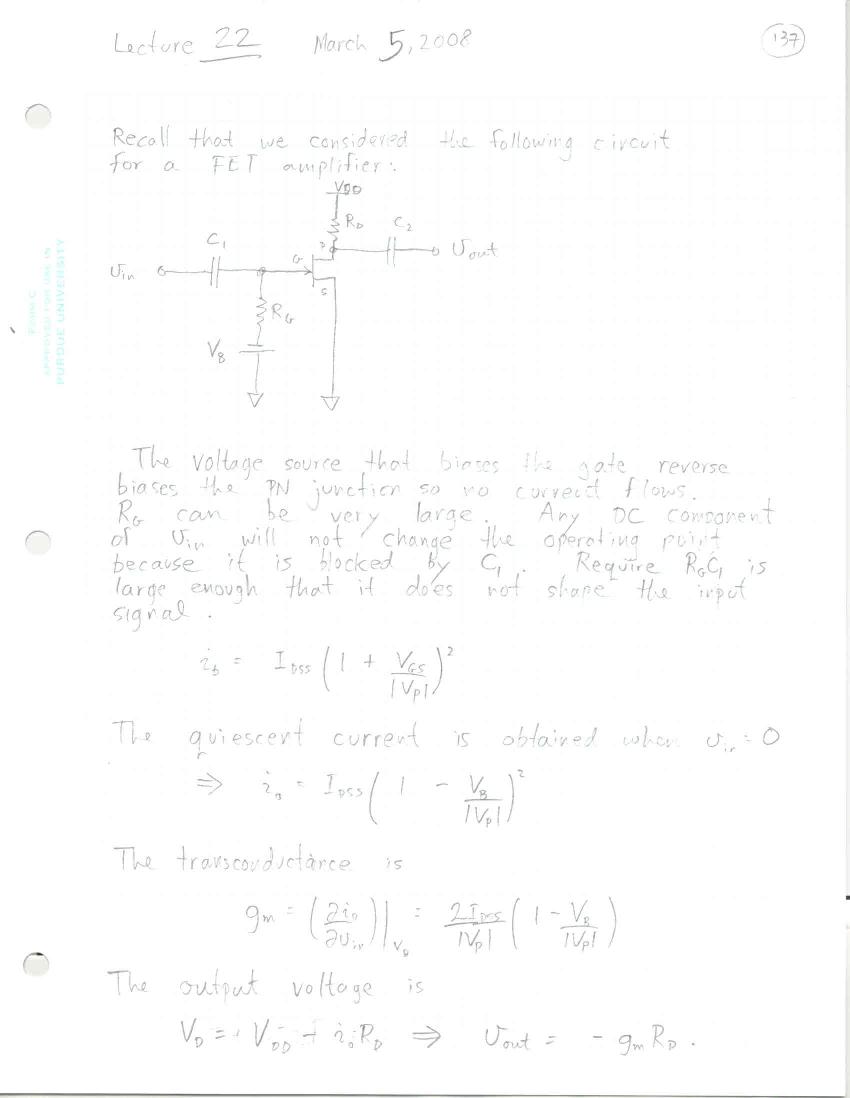 Lecture 22 March 5, 2008
137
Recall that we considered the following circuit
for a FET amplifier:
VDD
RD
C2
D
C1
G
Vout
Vin
S
RG
VB
FORM C
APPROVED FOR USE IN
PURDUE UNIVERSITY
The voltage source that biases the gate reverse
biases the PN junction so no current flows.
RG can be very large. Any DC component
of Vin will not change the operating point
because it is blocked by C1. Require RGC1 is
large enough that it does not shape the input
signal.
iD = IDSS (1 + VGS/|VP|)²
The quiescent current is obtained when vin = 0
⇒ iD = IDSS (1 - VB/|VP|)²
The transconductance is
gm = (∂iD/∂vin)|VB = 2IDSS/|VP| (1 - VB/|VP|)
The output voltage is
VD = VDD - iDRD ⇒ vout = - gm RD.